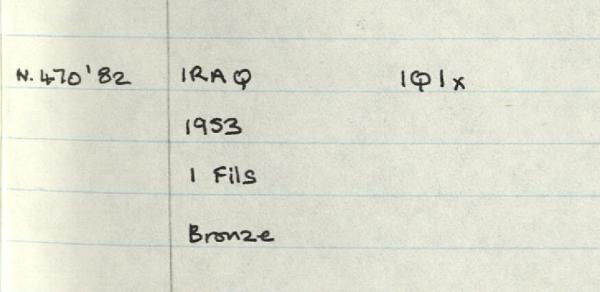 N.470'82 IRAQ IQIx
1953
1 Fils
Bronze